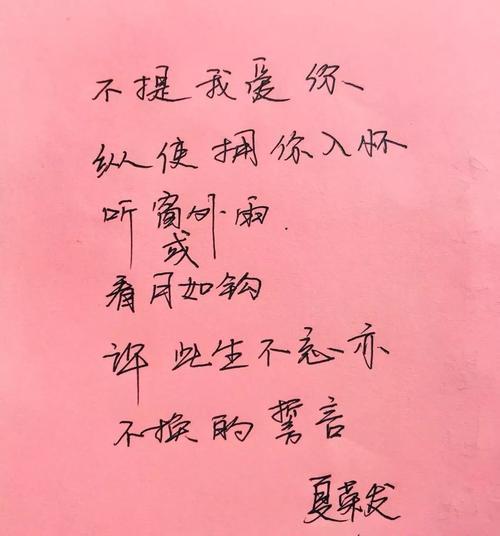 不提我爱你、
纵使拥你入怀
听窗外雨.
或
看月如钩
许此生不忘亦
不换的誓言
夏荣发